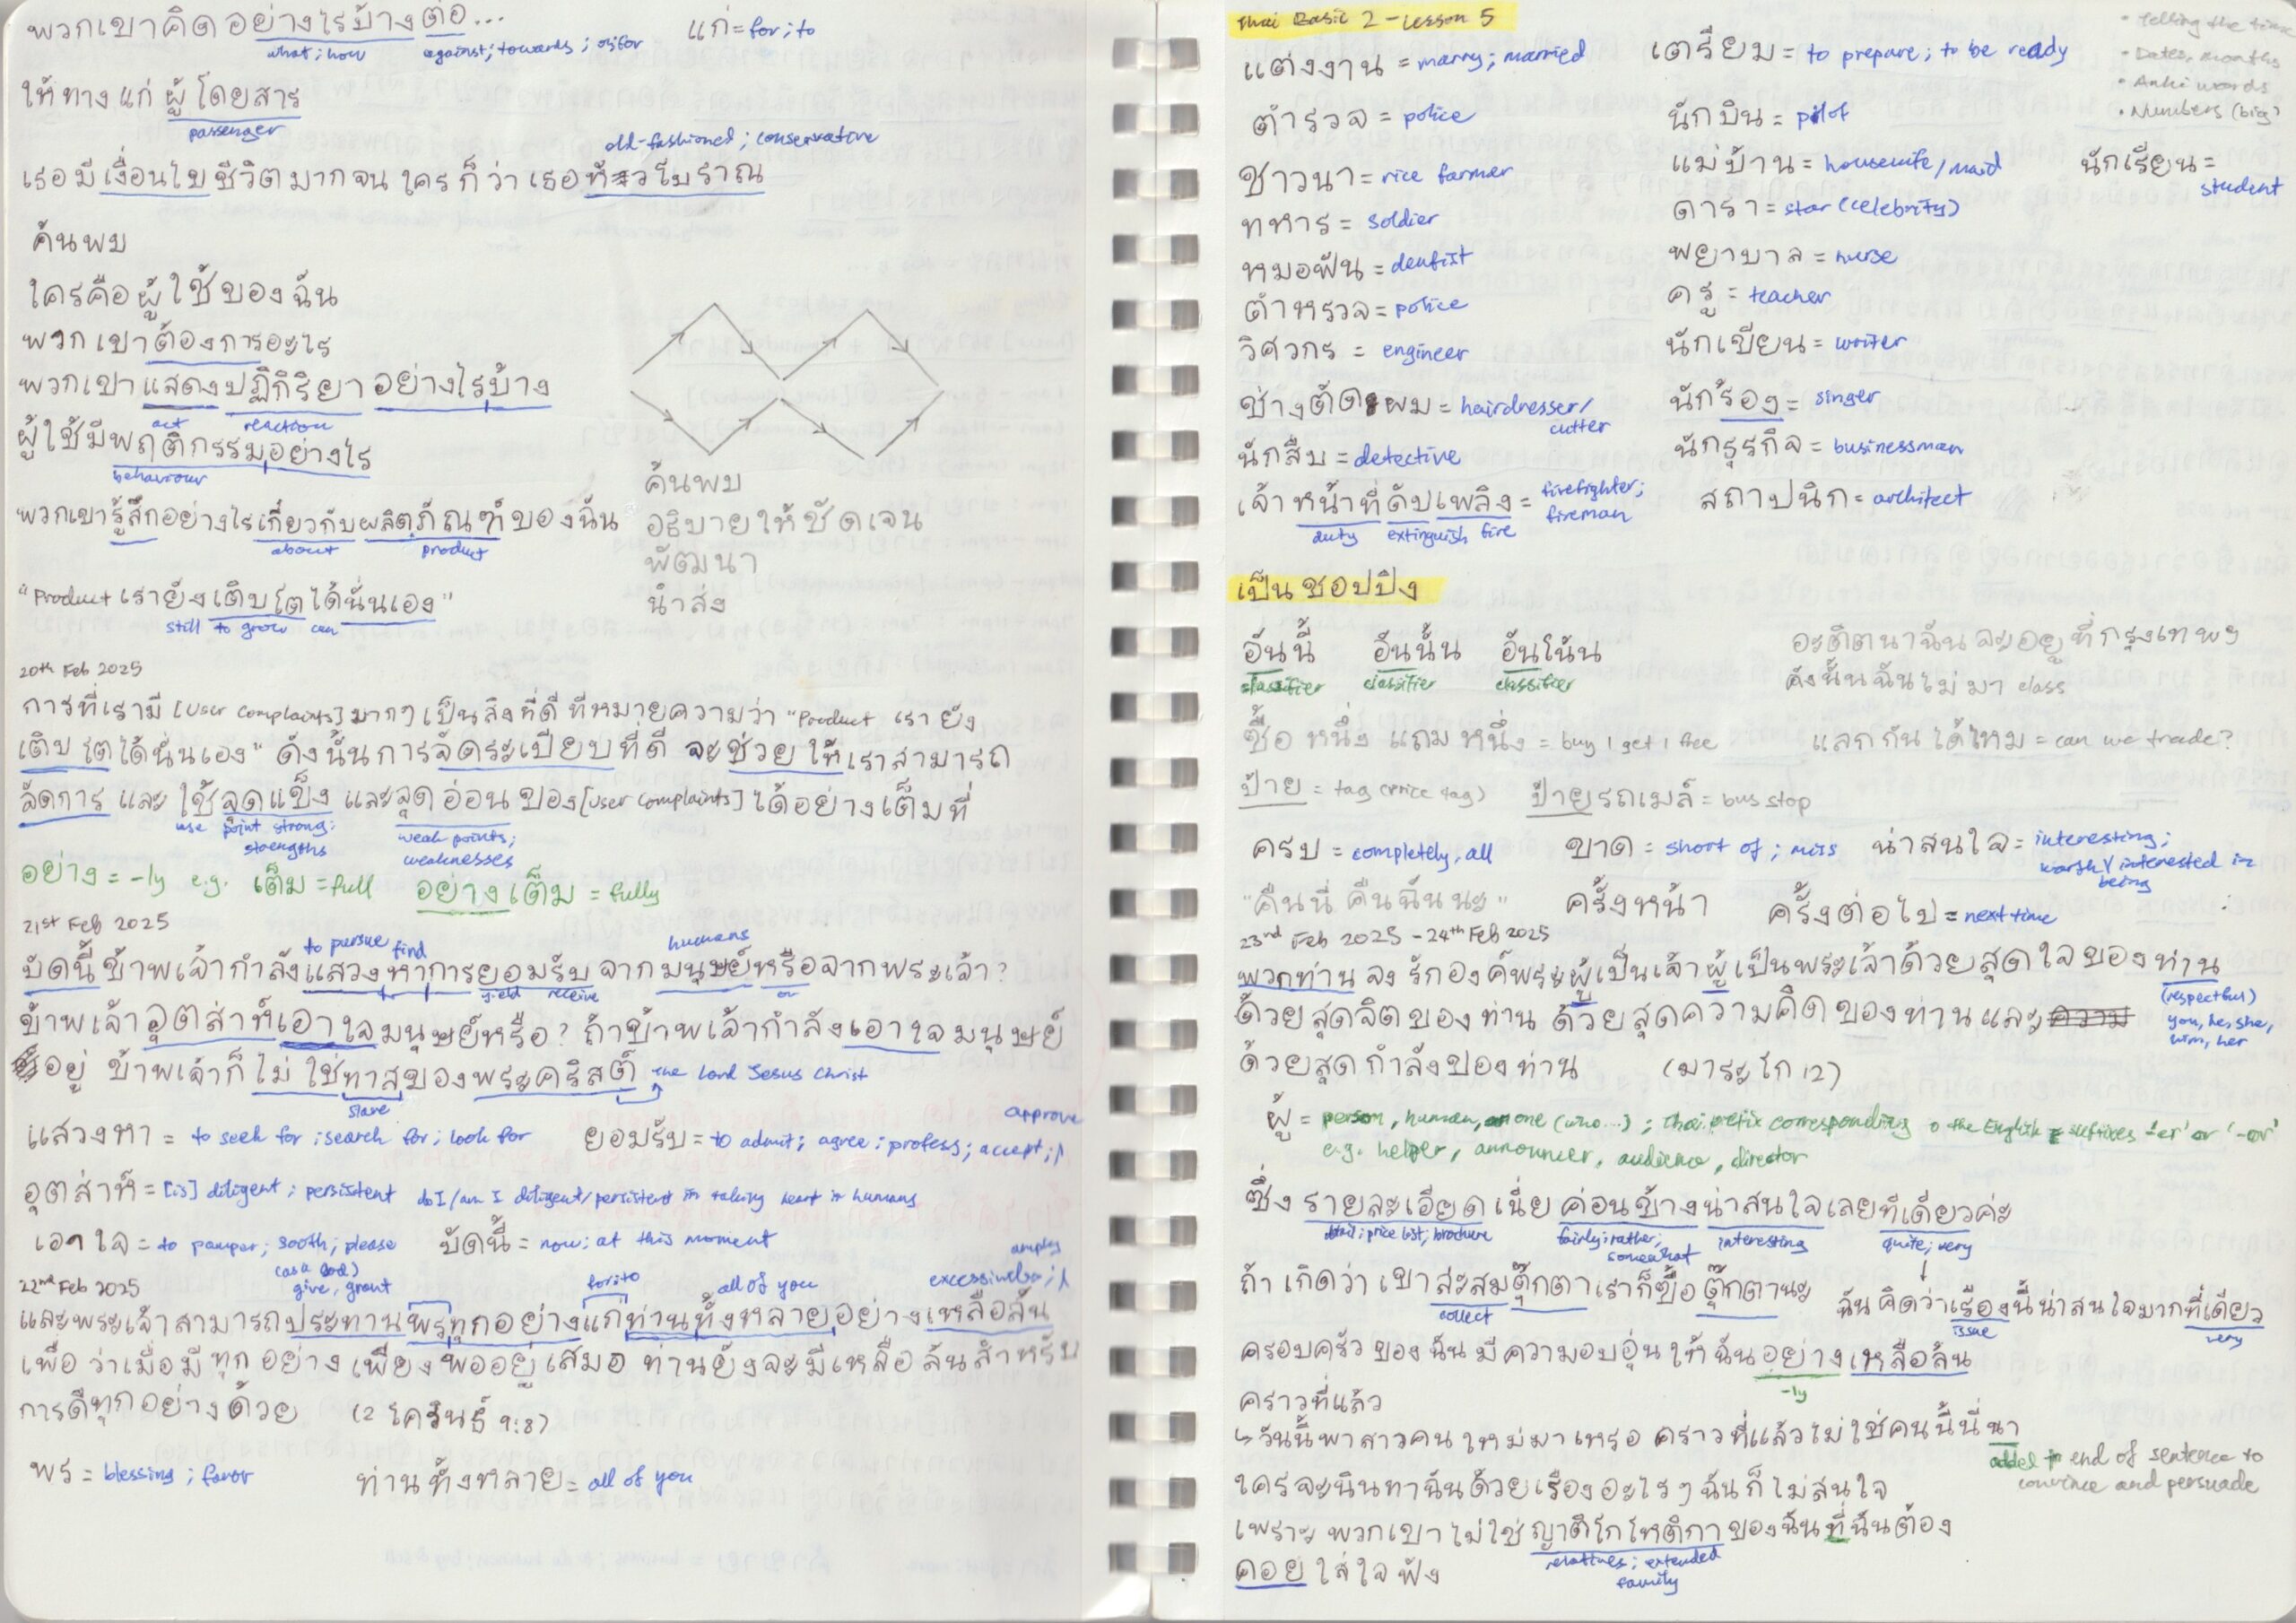 พวกเขาคิดอย่างไรบ้างต่อ... แก่ = for; to
what; how against; towards; of; for
ให้ทางแก่ผู้โดยสาร
passenger
old-fashioned; conservative
เธอมีเงื่อนไขชีวิตมากจนใครก็ว่าเธอหัวโบราณ
ค้นพบ
ใครคือผู้ใช้ของฉัน
พวกเขาต้องการอะไร
พวกเขาแสดงปฏิกิริยาอย่างไรบ้าง
act reaction
ผู้ใช้มีพฤติกรรมอย่างไร
behaviour
พวกเขารู้สึกอย่างไรเกี่ยวกับผลิตภัณฑ์ของฉัน
about product
ค้นพบ
อธิบายให้ชัดเจน
พัฒนา
นำส่ง
"Product เรายังเติบโตได้นั่นเอง"
still to grow can
20th Feb 2025
การที่เรามี [user complaints] มากๆ เป็นสิ่งที่ดี ที่หมายความว่า "Product เรายัง
เติบโตได้นั่นเอง" ดังนั้นการจัดระเบียบที่ดี จะช่วยให้เราสามารถ
จัดการ และ ใช้จุดแข็ง และจุดอ่อนของ [user complaints] ได้อย่างเต็มที่
use point strong; strengths weak points; weaknesses
อย่าง = -ly e.g. เต็ม = full อย่างเต็ม = fully
21st Feb 2025
to pursue find humans
บัดนี้ข้าพเจ้ากำลังแสวงหาการยอมรับจากมนุษย์หรือจากพระเจ้า?
yield receive or
ข้าพเจ้าอุตส่าห์เอาใจมนุษย์หรือ? ถ้าข้าพเจ้ากำลังเอาใจมนุษย์
อยู่ ข้าพเจ้าก็ไม่ใช่ทาสของพระคริสต์ the Lord Jesus Christ
slave
แสวงหา = to seek for; search for; look for ยอมรับ = to admit; agree; profess; accept; approve
อุตส่าห์ = [is] diligent; persistent do I/am I diligent/persistent in taking heart in humans
เอาใจ = to pamper; sooth; please บัดนี้ = now; at this moment
22nd Feb 2025
(as a God) give, grant for; to all of you excessively; amply
และพระเจ้าสามารถประทานพรทุกอย่างแก่ท่านทั้งหลายอย่างเหลือล้น
เพื่อว่าเมื่อมีทุกอย่างเพียงพออยู่เสมอ ท่านยังจะมีเหลือล้นสำหรับ
การดีทุกอย่างด้วย (2 โครินธ์ 9:8)
พร = blessing; favor ท่านทั้งหลาย = all of you
Thai Basic 2 - Lesson 5
• Telling the time
• Dates, months
• Anki words
• Numbers (big)
แต่งงาน = marry; married เตรียม = to prepare; to be ready
ตำรวจ = police นักบิน = pilot
ชาวนา = rice farmer แม่บ้าน = housewife/maid นักเรียน = student
ทหาร = soldier ดารา = star (celebrity)
หมอฟัน = dentist พยาบาล = nurse
ตำหรวจ = police ครู = teacher
วิศวกร = engineer นักเขียน = writer
ช่างตัดผม = hairdresser/cutter นักร้อง = singer
นักสืบ = detective นักธุรกิจ = businessman
เจ้าหน้าที่ดับเพลิง = firefighter; fireman สถาปนิก = architect
duty extinguish fire
เป็นชอปปิง
อันนี้ อันนั้น อันโน้น
classifier classifier classifier
อะติตนาฉันจะอยู่ที่กรุงเทพฯ
ดังนั้นฉันไม่มา class
ซื้อ หนึ่ง แถม หนึ่ง = buy 1 get 1 free แลกกันได้ไหม = can we trade?
ป้าย = tag (price tag) ป้ายรถเมล์ = bus stop
ครบ = completely, all ขาด = short of; miss น่าสนใจ = interesting; worth being interested in
"คืนนี่ คืนฉันนะ" ครั้งหน้า ครั้งต่อไป = next time
23rd Feb 2025 - 24th Feb 2025
พวกท่าน จง รักองค์พระผู้เป็นเจ้าผู้เป็นพระเจ้าด้วยสุดใจของท่าน
(respectful) you, he, she, him, her
ด้วยสุดจิตของท่าน ด้วยสุดความคิดของท่านและ
ด้วยสุดกำลังของท่าน (มาระโก 12)
ผู้ = person, human, one (who...); Thai prefix corresponding to the English suffixes '-er' or '-or'
e.g. helper, announcer, audience, director
ซึ่งรายละเอียดเนี่ยค่อนข้างน่าสนใจเลยทีเดียวค่ะ
detail; price list; brochure fairly; rather; somewhat interesting quite; very
ถ้าเกิดว่าเขาสะสมตุ๊กตาเราก็ซื้อตุ๊กตานะ
collect
ฉันคิดว่าเรื่องนี้น่าสนใจมากที่เดียว
issue very
ครอบครัวของฉันมีความอบอุ่นให้ฉันอย่างเหลือล้น
-ly
คราวที่แล้ว
↳ วันนี้พาสาวคนใหม่มาเหรอ คราวที่แล้วไม่ใช่คนนี้นี่นา
added to end of sentence to convince and persuade
ใครจะนินทาฉันด้วยเรื่องอะไรๆ ฉันก็ไม่สนใจ
เพราะพวกเขาไม่ใช่ญาติโกโหติกาของฉันที่ฉันต้อง
relatives; extended family
คอยใส่ใจฟัง